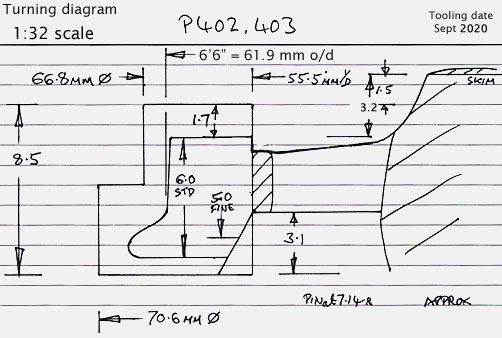 Turning diagram
1:32 scale
P402,403
Tooling date
Sept 2020
6'6" = 61.9 mm o/d
66.8MM Ø
55.5 MM I/D
SKIM
1.5
3.2
1.7
8.5
6.0
STD
5.0
FINE
3.1
PIN at 7.14 R
APPROX
70.6 MM Ø